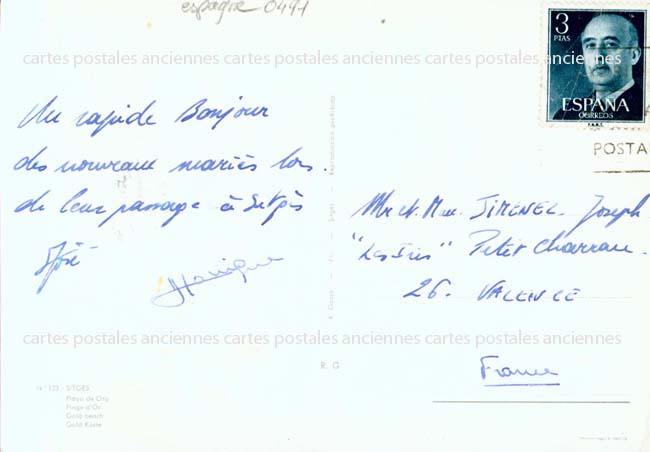 espagne 0491
cartes postales anciennes cartes postales anciennes cartes postales anciennes
3
PTAS
ESPAÑA
CORREOS
F.N.M.T.
POSTA
Un rapide Bonjour
des nouveaux mariés lors
de leur passage à Sitgès
José
Monique
Mr et Mme JIMENEZ Joseph
"Les Iris" Petit Charran
26. VALENCE
France
Reproducción prohibida
Sitges
cartes postales anciennes cartes postales anciennes cartes postales anciennes
R. G
N.º 123. SITGES
Playa de Oro
Plage d'Or
Gold beach
Gold Küste